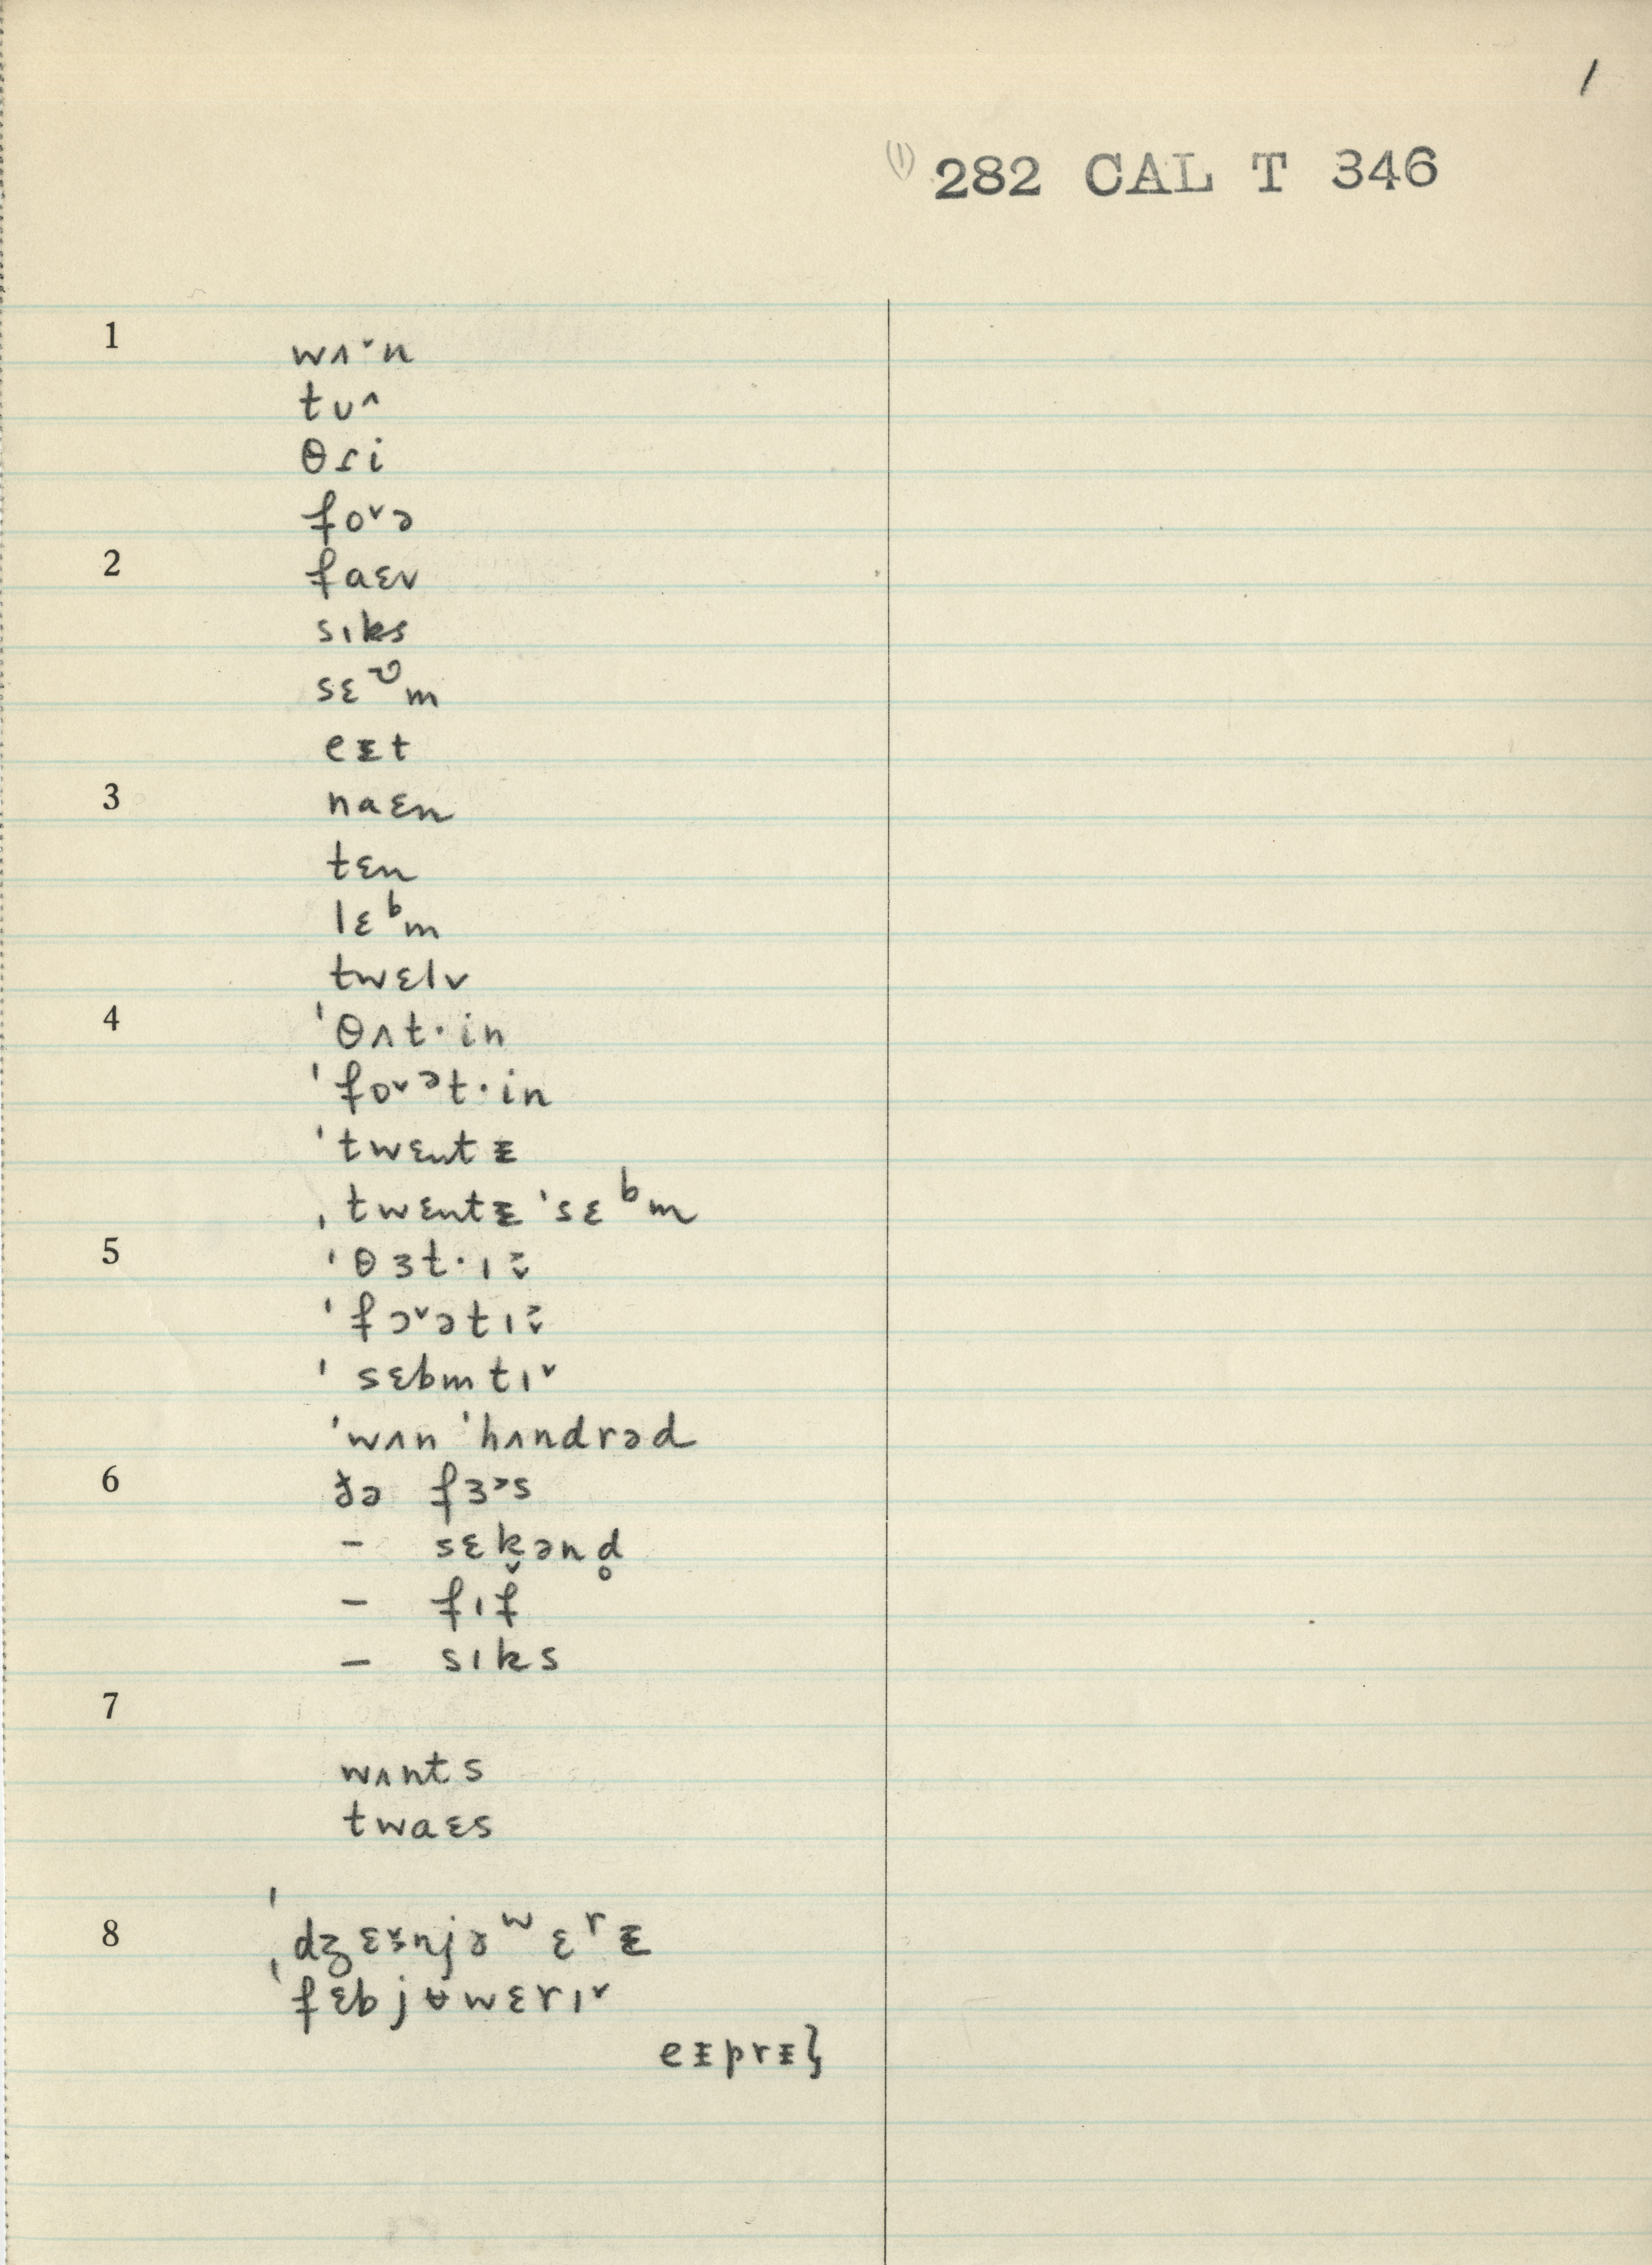 /
(1) 282 CAL T 346
1 wʌ˅n
tʊ^
θɾi
foᵛə
2 faɛv
sɪks
sɛᶹm
eᵻt
3 naɛn
tɛn
lɛᵇm
twɛlv
4 ˈθʌt·in
ˈfoᵛᵊt·in
ˈtwɛntᵻ
ˌtwɛntᵻ ˈsɛᵇm
5 ˈθɜt·ɪ
ˈfɔᵛətɪ
ˈsɛbmtɪ˅
ˈwʌn ˈhʌndrəd
6 ðə fɜ˃s
– sɛk̬ənd̥
– fɪf
– sɪks
7
wʌnts
twaɛs
8 dʒɛnjəʷɛʳᵻ
ˈfɛbjʉwɛrɪ˅
eᵻprᵻɫ